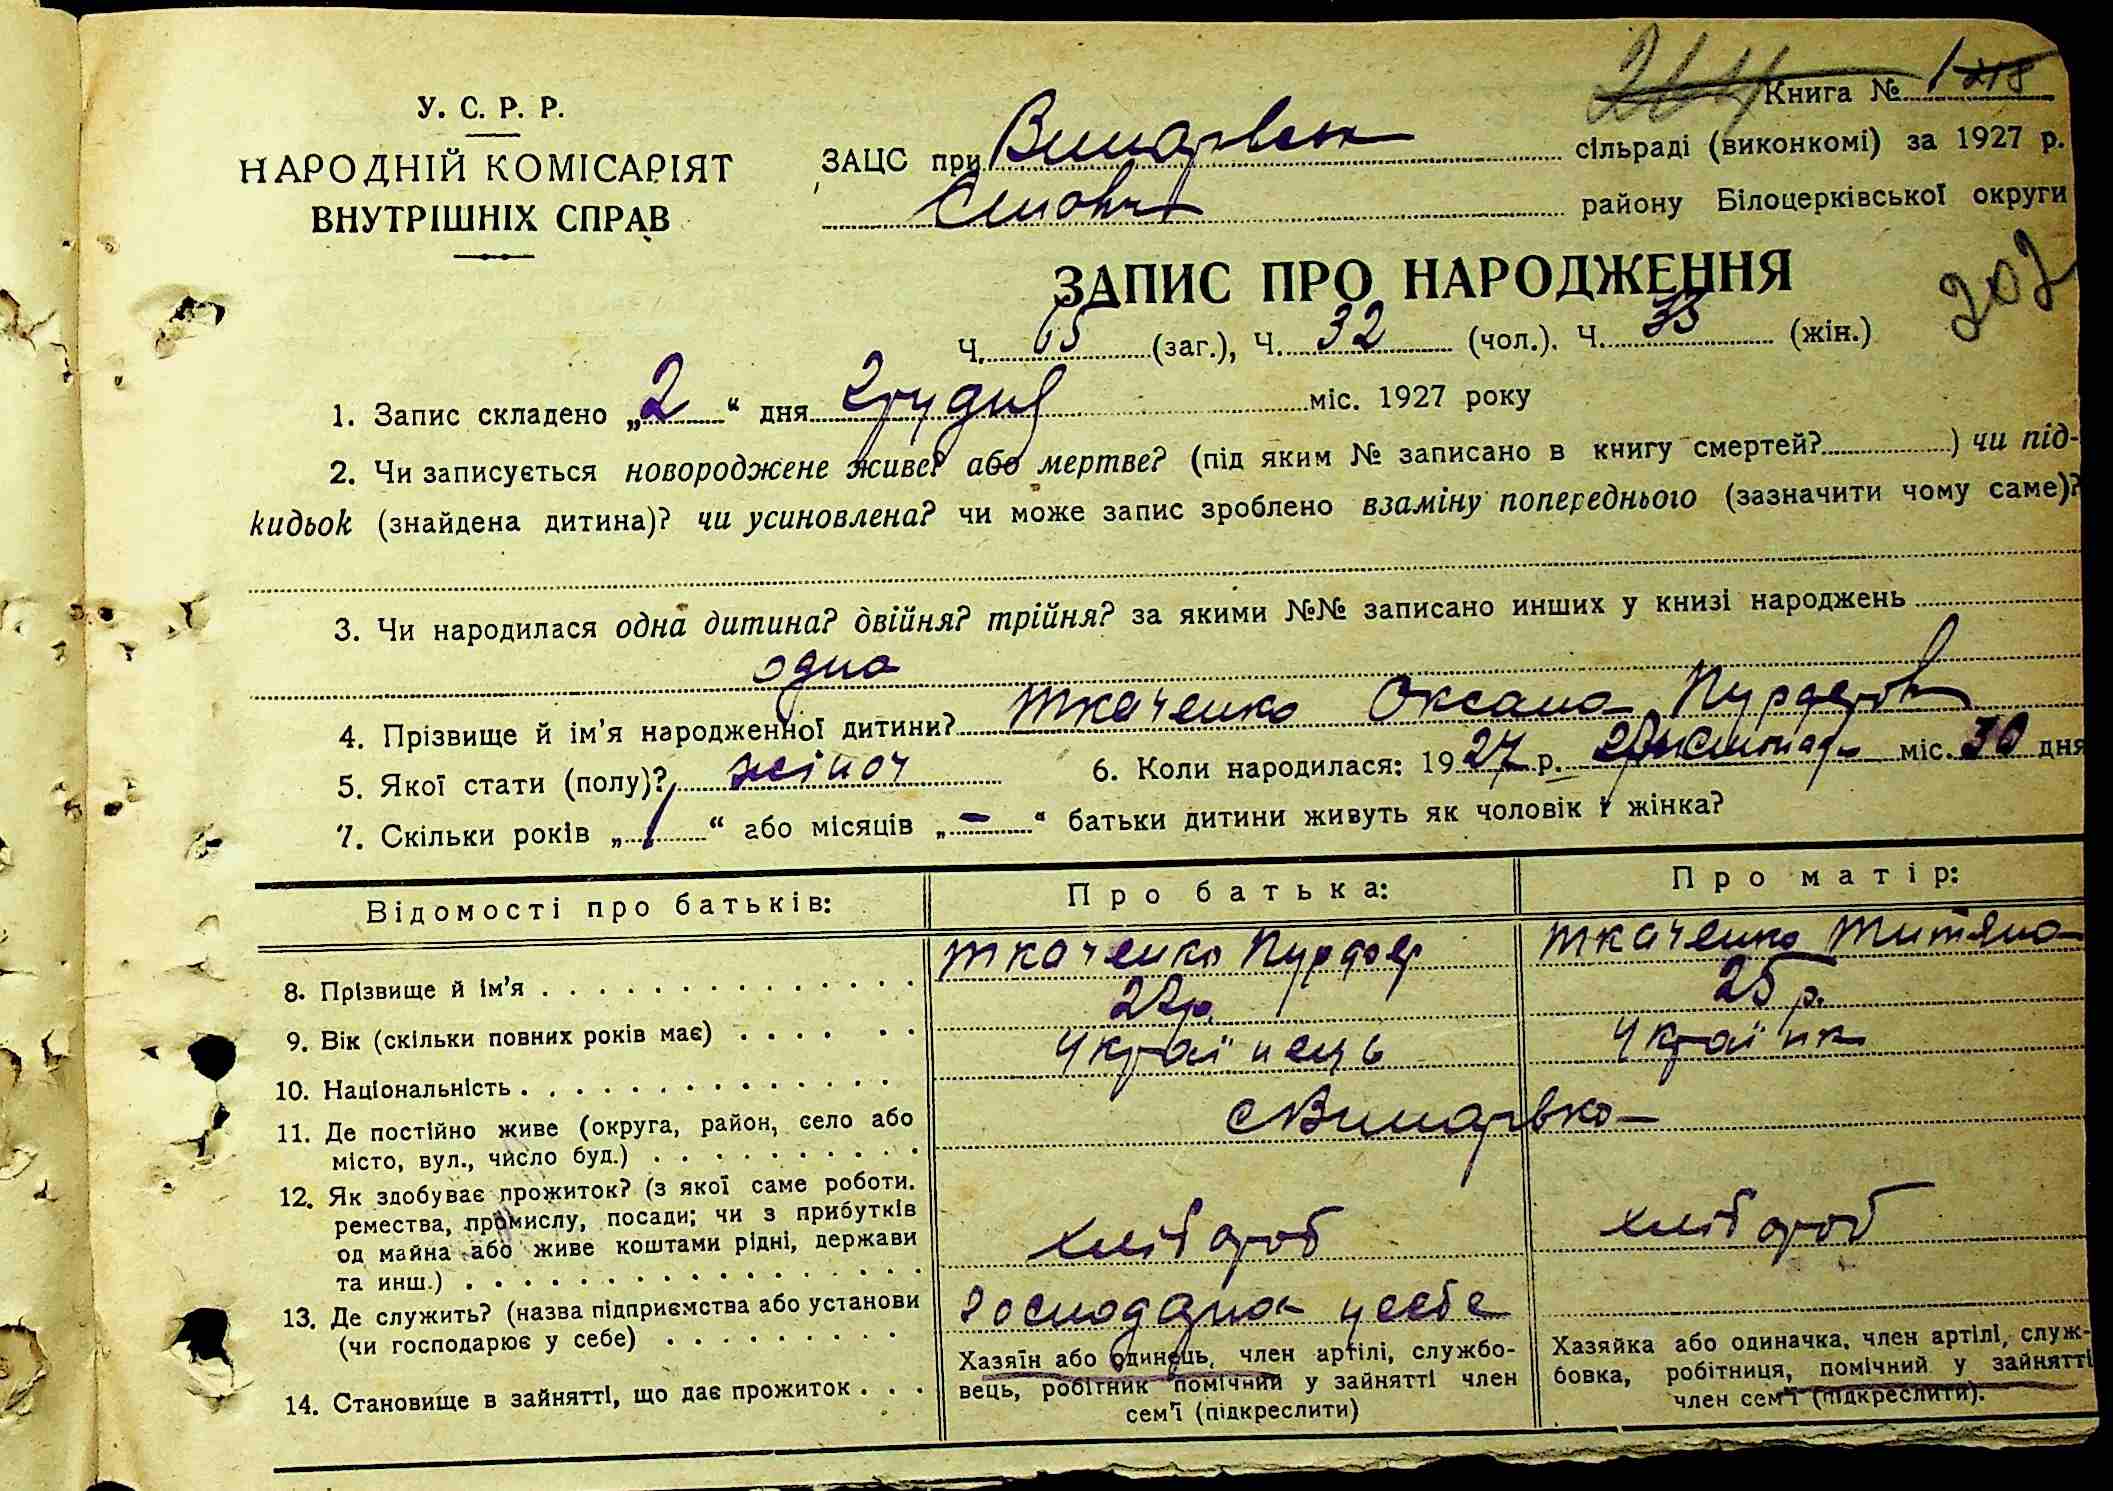 264 Книга № 1 218
У. С. Р. Р.
НАРОДНІЙ КОМІСАРІЯТ
ВНУТРІШНІХ СПРАВ
ЗАЦС при Винарівськ сільраді (виконкомі) за 1927 р.
району Білоцерківської округи
202
ЗАПИС ПРО НАРОДЖЕННЯ
Ч. 65 (заг.), Ч. 32 (чол.). Ч. 33 (жін.)
1. Запис складено „2“ дня грудня міс. 1927 року
2. Чи записується новороджене живе? або мертве? (під яким № записано в книгу смертей? ) чи під-
кидьок (знайдена дитина)? чи усиновлена? чи може запис зроблено взаміну попереднього (зазначити чому саме)?
3. Чи народилася одна дитина? двійня? трійня? за якими №№ записано инших у книзі народжень
одна
4. Прізвище й ім'я народженної дитини? Ткаченко Оксана
5. Якої стати (полу)? жіноч 6. Коли народилася: 1927 р. листопад міс. 30 дня
7. Скільки років „1“ або місяців „-“ батьки дитини живуть як чоловік і жінка?
Відомості про батьків: Про батька: Про матір:
8. Прізвище й ім'я Ткаченко Ткаченко Титяна
9. Вік (скільки повних років має) 22р. 25 р.
10. Національність Українець Українк
11. Де постійно живе (округа, район, село або
місто, вул., число буд.) с Винарівка
12. Як здобуває прожиток? (з якої саме роботи.
ремества, промислу, посади; чи з прибутків
од майна або живе коштами рідні, держави
та инш.) хлібороб хлібороб
13. Де служить? (назва підприємства або установи
(чи господарює у себе) господарює у себе
14. Становище в зайнятті, що дає прожиток
Хазяїн або одинець, член артілі, службо-
вець, робітник помічний у зайнятті член
сем'ї (підкреслити)
Хазяйка або одиначка, член артілі, служ-
бовка, робітниця, помічний у зайнятті
член сем'ї (підкреслити).